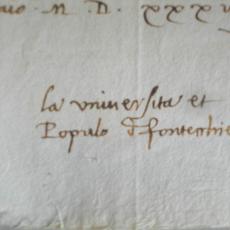 M. D. XXX
la università et
Populo d fontechie